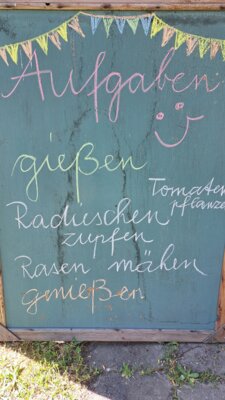 Aufgaben
gießen
Tomaten
pflanze
Radieschen
zupfen
Rasen mähen
genießen